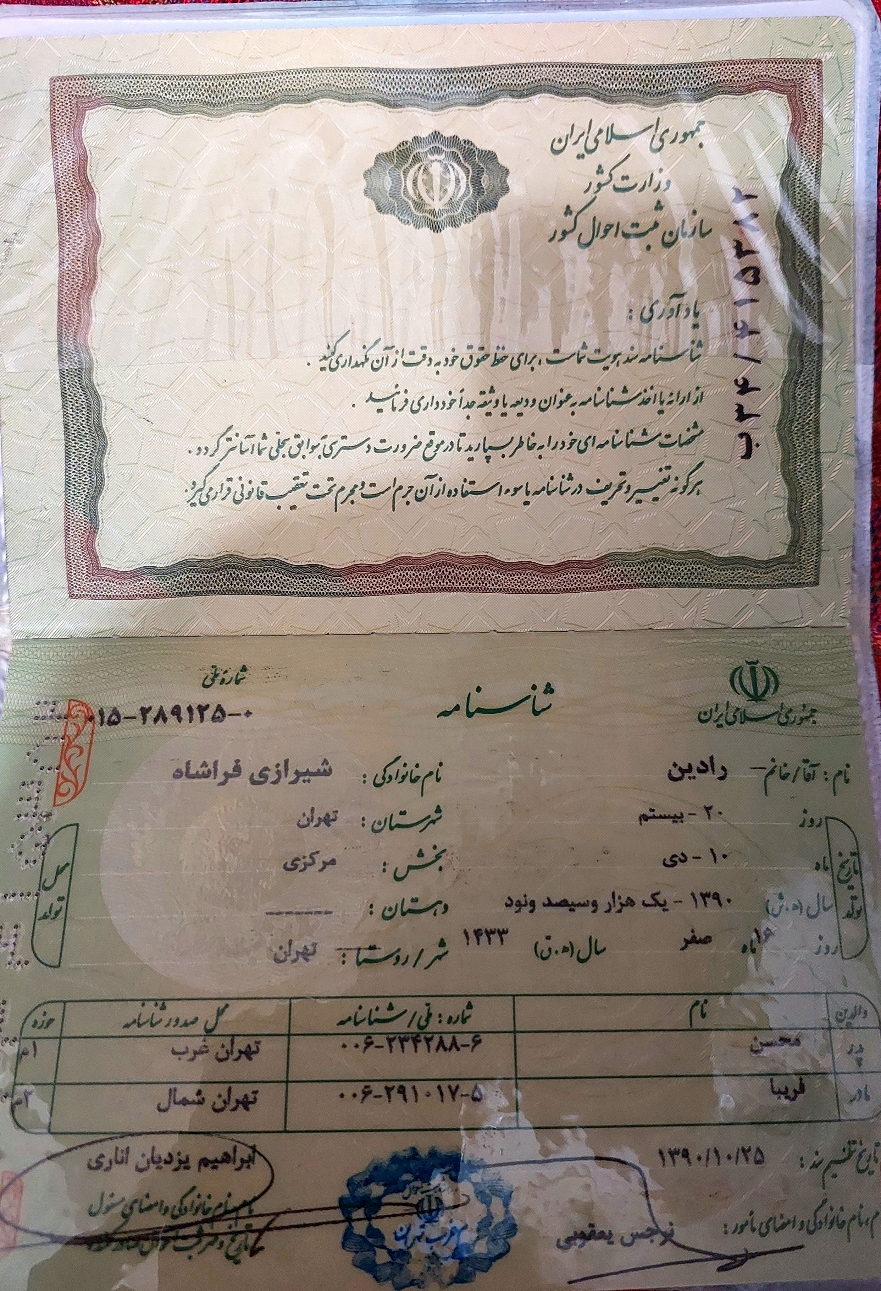 جمهوری اسلامی ایران
وزارت کشور
سازمان ثبت احوال کشور
ب۳۴/۴۱۵۳۸۲
یادآوری :
شناسنامه سند هویت شماست ، برای حفظ حقوق خود به دقت از آن نگهداری کنید .
از ارائه یا اخذ شناسنامه به عنوان ودیعه یا وثیقه جداً خودداری فرمائید .
مشخصات شناسنامه ای خود را به خاطر بسپارید تا در موقع ضرورت دسترسی به سوابق سجلی شما آسانتر گردد .
هرگونه تغییر و تحریف در شناسنامه یا سوء استفاده از آن جرم است و مجرم تحت تعقیب قانونی قرار می گیرد .
جمهوری اسلامی ایران
شناسنامه
شماره ملی
۰۱۵-۲۸۹۱۲۵-۰
نام : آقا/خانم رادین نام خانوادگی : شیرازی فراشاه
تاریخ تولد
روز ۲۰ - بیستم
ماه ۱۰ - دی
سال (ه.ش) ۱۳۹۰ - یک هزار وسیصد ونود
روز ۱۶ ماه صفر سال (ه.ق) ۱۴۳۳
محل تولد
شهرستان : تهران
بخش : مرکزی
دهستان : -------
شهر/روستا : تهران
والدین نام شماره : ملی/شناسنامه محل صدور شناسنامه حوزه
پدر محسن ۰۰۶-۲۳۴۲۸۸-۶ تهران غرب ۱م
مادر فریبا ۰۰۶-۲۹۱۰۱۷-۵ تهران شمال ۲م
تاریخ تنظیم سند : ۱۳۹۰/۱۰/۲۵ ابراهیم یزدیان اناری
نام، نام خانوادگی و امضای مأمور : نرجس یعقوبی
نام، نام خانوادگی و امضای مسئول
غرب تهران